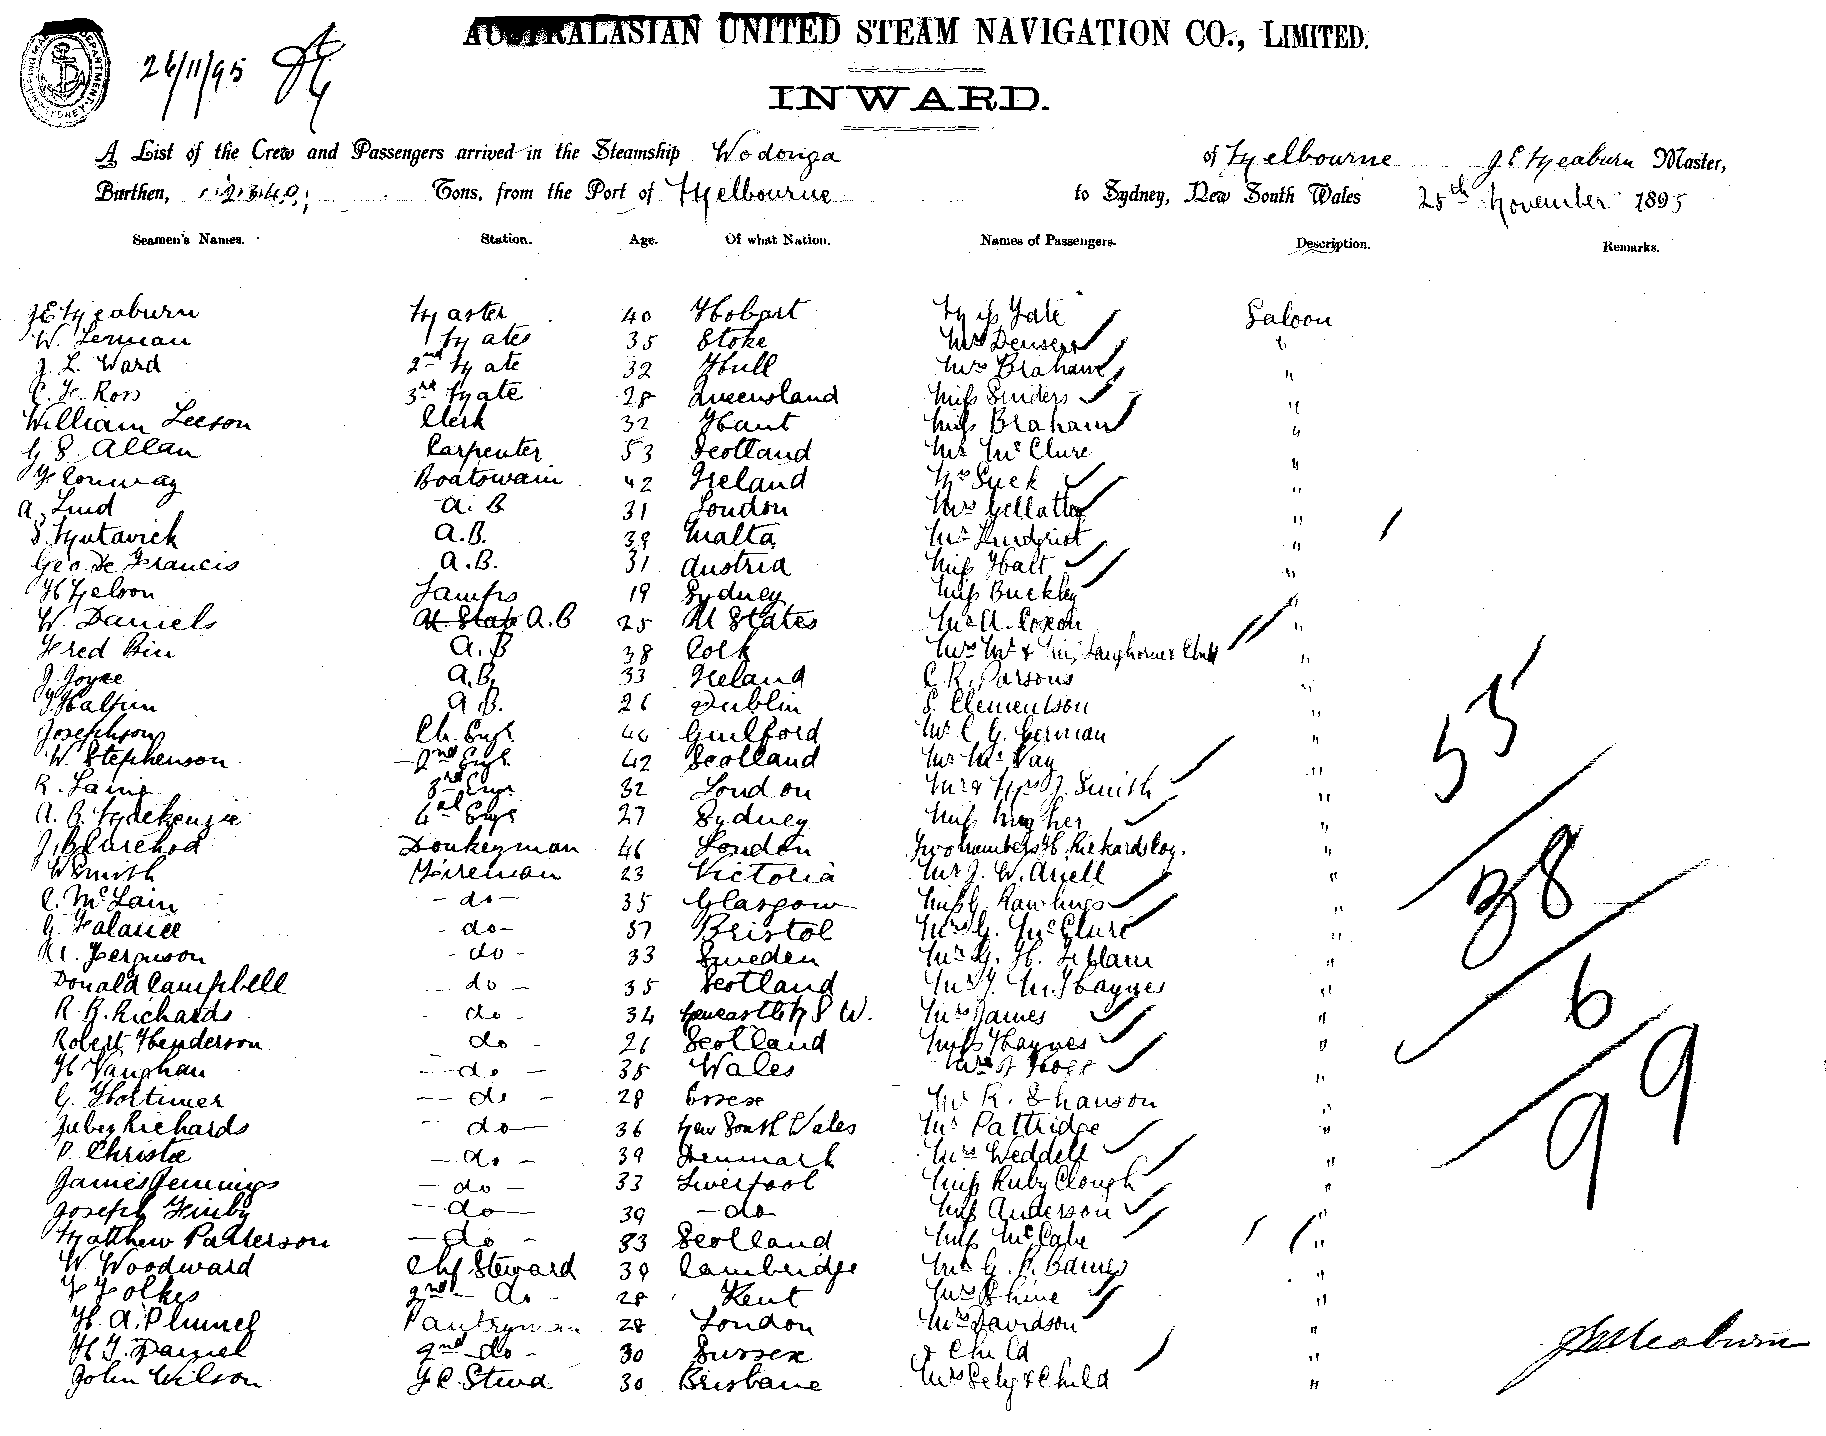 AUSTRALASIAN UNITED STEAM NAVIGATION CO., LIMITED.
26/11/95
INWARD.
A List of the Crew and Passengers arrived in the Steamship Wodonga of Melbourne J E Meaburn Master,
Burthen, 2340 Tons, from the Port of Melbourne to Sydney, New South Wales 25th November 1895
Seamen's Names. Station. Age. Of what Nation. Names of Passengers. Description. Remarks.
J E Meaburn Master 40 Hobart Miss Yale Saloon
W. Lerman 1 Mates 35 Stoke Mrs Denser "
J. L. Ward 2nd Mate 32 Hull Mrs Braham "
Ross 3rd Mate 28 Queensland Miss Sinders "
William Leeson Clerk 32 Hant Miss Braham "
G S Allan Carpenter 53 Scotland Mr McClure "
Conway Boatswain 42 Ireland Suck "
A. Lund A.B 31 London Mrs "
S Mutavick A.B. 39 Malta Mr Lundqvist "
Geo De Francis A.B. 31 Austria Miss Halt "
H Nelson Lamps 19 Sydney Miss Buckley "
W. Daniels U State A.B 25 U States Mr A. Coxon "
Fred Bin A.B 38 Cork Mrs Mr & Miss Langhornes Child "
J. Joyce A.B. 33 Ireland C. R. Parsons "
J Halpin A.B. 26 Dublin S. Clementson "
Josephson Ch. Engr Guilford Mr C G. German "
W. Stephenson 2nd Engr 42 Scotland Mr McVay "
R. Laing 3rd Engr 32 London Mr & Mrs J. Smith "
A. B. Mackenzie 4th Engr 27 Sydney Miss "
J. Donkeyman 46 London Rickards Coy. "
W Smith Fireman 23 Victoria Mr J. W. Ariell "
C. McLain - do - 35 Glasgow Miss G. Rawlings "
G. Falance - do - 57 Bristol Mrs G. McClure "
Ferguson - do - 33 Sweden Mr G. H. "
Donald Campbell - do - 35 Scotland Mr J. M. Haynes "
R. R. Richards - do - 34 Newcastle N S W. Mrs James "
Robert Henderson do - 26 Scotland Miss Haynes "
H Vaughan - do - 35 Wales Mrs "
G. Hortimer - do - 28 Essex Mr R. Shanson "
Richards - do - 36 New South Wales Mr Pattridge "
P. Christie - do - 39 Denmark Mrs Weddell "
James Jennings - do - 33 Liverpool Miss Ruby Clough "
Joseph Finby - do - 39 - do - Miss Anderson "
Matthew Patterson - do - 33 Scotland Miss McCabe "
W. Woodward Chf Steward 39 Cambridge Mr G. P. Barnes "
F Folkes 2nd do - 28 Kent Mrs Shine "
H. A. Plummer Pantryman 28 London Mrs Davidson "
H J. Daniel 2nd do - 30 Sussex & Child "
John Wilson F C Stwd 30 Brisbane Mrs & Child "
55
38
6
99
J E Meaburn